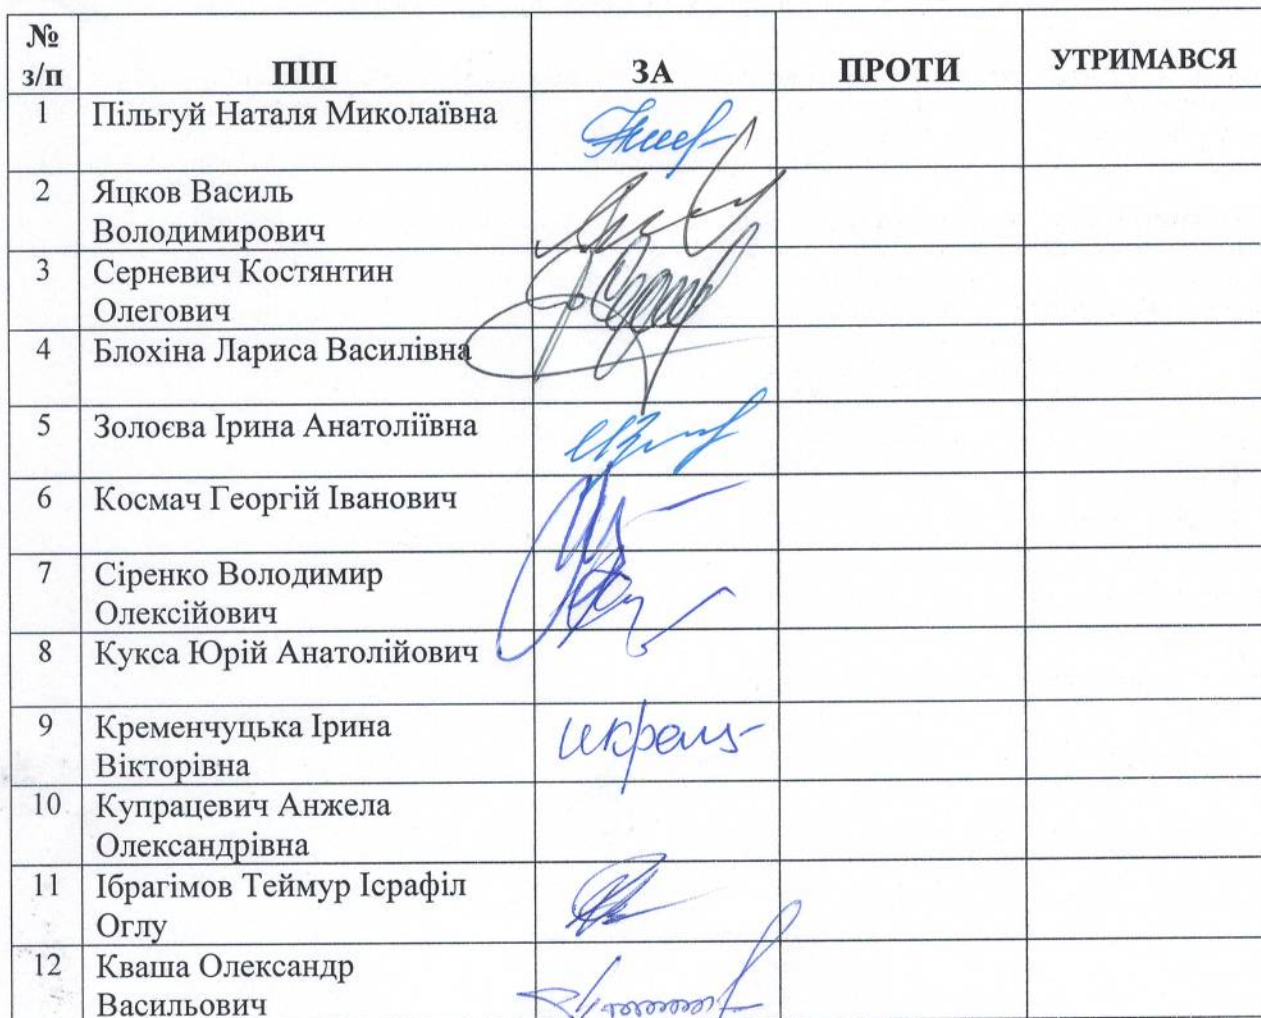 №
з/п
ПІП
ЗА
ПРОТИ
УТРИМАВСЯ
1
Пільгуй Наталя Миколаївна
2
Яцков Василь
Володимирович
3
Серневич Костянтин
Олегович
4
Блохіна Лариса Василівна
5
Золоєва Ірина Анатоліївна
6
Космач Георгій Іванович
7
Сіренко Володимир
Олексійович
8
Кукса Юрій Анатолійович
9
Кременчуцька Ірина
Вікторівна
10
Купрацевич Анжела
Олександрівна
11
Ібрагімов Теймур Ісрафіл
Оглу
12
Кваша Олександр
Васильович